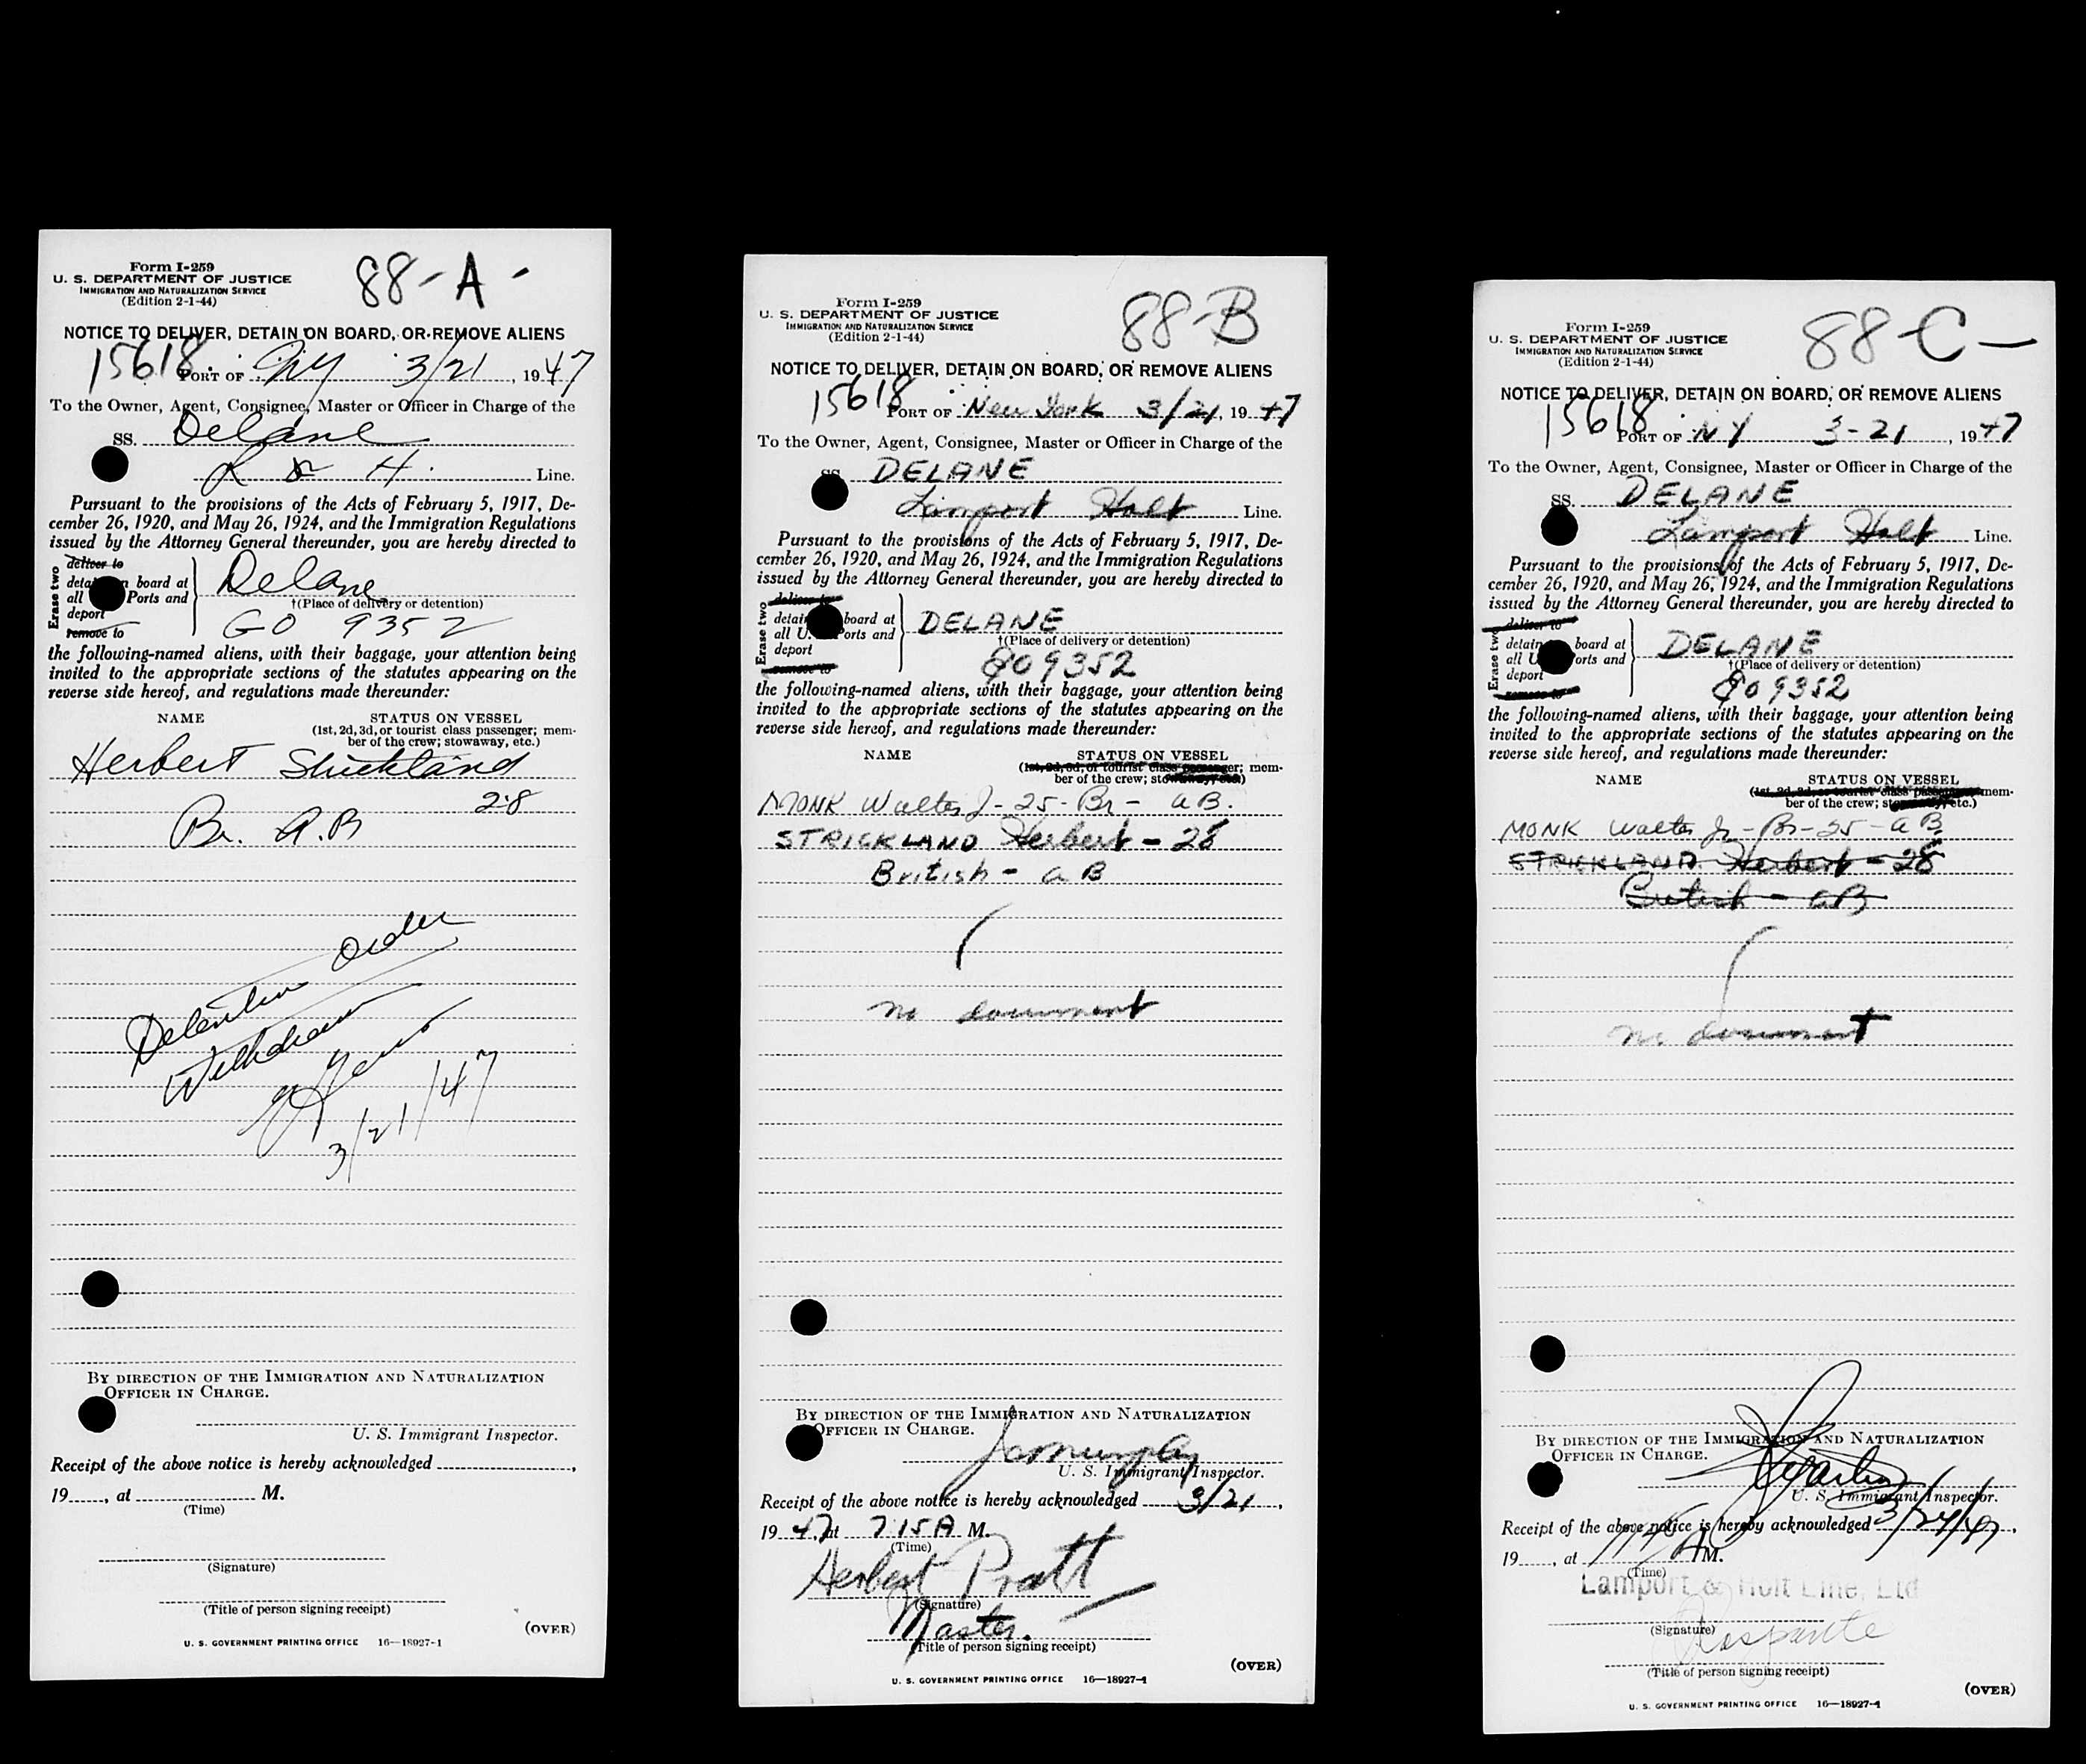 Form I-259
U. S. DEPARTMENT OF JUSTICE
IMMIGRATION AND NATURALIZATION SERVICE
(Edition 2-1-44)
88-A-
NOTICE TO DELIVER, DETAIN ON BOARD, OR REMOVE ALIENS
15618
PORT OF NY 3/21, 1947
To the Owner, Agent, Consignee, Master or Officer in Charge of the
SS. Delane
L & H. Line.
Pursuant to the provisions of the Acts of February 5, 1917, De-
cember 26, 1920, and May 26, 1924, and the Immigration Regulations
issued by the Attorney General thereunder, you are hereby directed to
Erase two
deliver to
detain on board at
all Ports and
deport
remove to
Delane
†(Place of delivery or detention)
GO 9352
the following-named aliens, with their baggage, your attention being
invited to the appropriate sections of the statutes appearing on the
reverse side hereof, and regulations made thereunder:
NAME STATUS ON VESSEL
(1st, 2d, 3d, or tourist class passenger; mem-
ber of the crew; stowaway, etc.)
Herbert Strickland
28
Br. A.B
Detention Order
Withdrawn
3/21/47
BY DIRECTION OF THE IMMIGRATION AND NATURALIZATION
OFFICER IN CHARGE.
U. S. Immigrant Inspector.
Receipt of the above notice is hereby acknowledged
19____, at ____ M.
(Time)
(Signature)
(Title of person signing receipt)
(OVER)
U. S. GOVERNMENT PRINTING OFFICE 16—18927-1
Form I-259
U. S. DEPARTMENT OF JUSTICE
IMMIGRATION AND NATURALIZATION SERVICE
(Edition 2-1-44)
88-B
NOTICE TO DELIVER, DETAIN ON BOARD, OR REMOVE ALIENS
15618
PORT OF New York 3/21, 1947
To the Owner, Agent, Consignee, Master or Officer in Charge of the
SS. DELANE
Lamport Holt Line.
Pursuant to the provisions of the Acts of February 5, 1917, De-
cember 26, 1920, and May 26, 1924, and the Immigration Regulations
issued by the Attorney General thereunder, you are hereby directed to
Erase two
deliver to
detain board at
all U. Ports and
deport
remove to
DELANE
†(Place of delivery or detention)
809352
the following-named aliens, with their baggage, your attention being
invited to the appropriate sections of the statutes appearing on the
reverse side hereof, and regulations made thereunder:
NAME STATUS ON VESSEL
(1st, 2d, 3d, or tourist class passenger; mem-
ber of the crew; stowaway, etc.)
MONK Walter J - 25 - Br - aB.
STRICKLAND Herbert - 28
British - a B
no document
BY DIRECTION OF THE IMMIGRATION AND NATURALIZATION
OFFICER IN CHARGE.
U. S. Immigrant Inspector.
Receipt of the above notice is hereby acknowledged 3/21,
1947, at 715 A M.
(Time)
Herbert Pratt
(Signature)
Master.
(Title of person signing receipt)
(OVER)
U. S. GOVERNMENT PRINTING OFFICE 16—18927-1
Form I-259
U. S. DEPARTMENT OF JUSTICE
IMMIGRATION AND NATURALIZATION SERVICE
(Edition 2-1-44)
88-C-
NOTICE TO DELIVER, DETAIN ON BOARD, OR REMOVE ALIENS
15618
PORT OF NY 3-21, 1947
To the Owner, Agent, Consignee, Master or Officer in Charge of the
SS. DELANE
Lamport Holt Line.
Pursuant to the provisions of the Acts of February 5, 1917, De-
cember 26, 1920, and May 26, 1924, and the Immigration Regulations
issued by the Attorney General thereunder, you are hereby directed to
Erase two
deliver to
detain board at
all U Ports and
deport
remove to
DELANE
†(Place of delivery or detention)
809352
the following-named aliens, with their baggage, your attention being
invited to the appropriate sections of the statutes appearing on the
reverse side hereof, and regulations made thereunder:
NAME STATUS ON VESSEL
(1st, 2d, 3d, or tourist class passenger; mem-
ber of the crew; stowaway, etc.)
MONK Walter J - Br - 25 - aB
STRICKLAND Herbert - 28
British - aB
no document
BY DIRECTION OF THE IMMIGRATION AND NATURALIZATION
OFFICER IN CHARGE.
U. S. Immigrant Inspector.
Receipt of the above notice is hereby acknowledged 3/24/47,
19____, at M.
(Time)
Lamport & Holt Line, Ltd
(Signature)
(Title of person signing receipt)
(OVER)
U. S. GOVERNMENT PRINTING OFFICE 16—18927-1